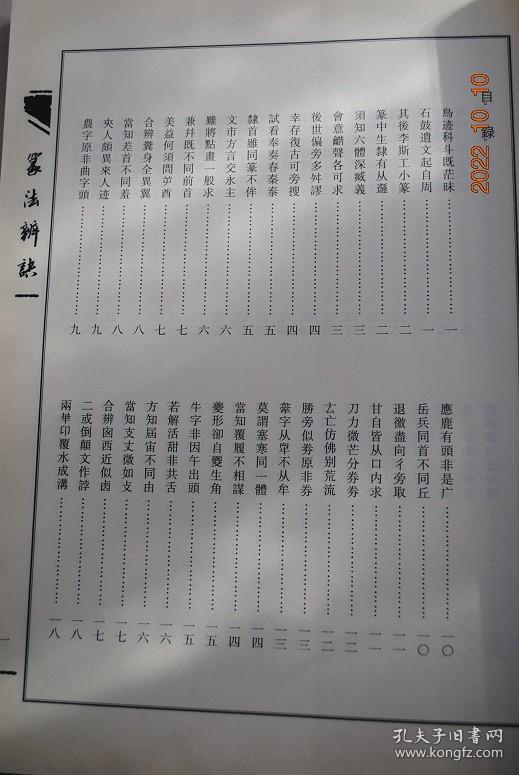 目録
鳥迹科斗既茫昧……一
石鼓遺文起自周……一
其後李斯工小篆……二
篆中生隸有从邋……二
須知六體深臧義……三
會意龤聲各可求……三
後世偏旁多舛謬……四
幸存復古可旁搜……四
試看奉奏春秦泰……五
隸首雖同篆不侔……五
文市方言交永主……六
雖將點畫一般求……六
兼幷既不同前首……七
美益何須問䒑酋……七
合辨糞身全異翼……八
當知差首不同羞……八
夾人頗異來人迹……九
農字原非曲字頭……九
應鹿有頭非是广……一〇
岳兵同首不同丘……一〇
退徹盡向彳旁取……一一
甘自皆从口内求……一一
刀力微芒分券劵……一二
𠫓亡仿佛别荒流……一二
勝旁似券原非券……一三
牽字从牽不从牟……一三
莫謂塞寒同一體……一四
當知覆履不相謀……一四
夔形卻自夒生角……一五
牛字非因午出頭……一五
若解活甜非共舌……一六
方知屆宙不同由……一六
當知支丈微如支……一七
合辨囪西近似卤……一七
二或倒顛文作誖……一八
兩𠦒印覆水成溝……一八
篆法辨訣
2022 10 10
孔夫子旧書网
www.kongfz.com